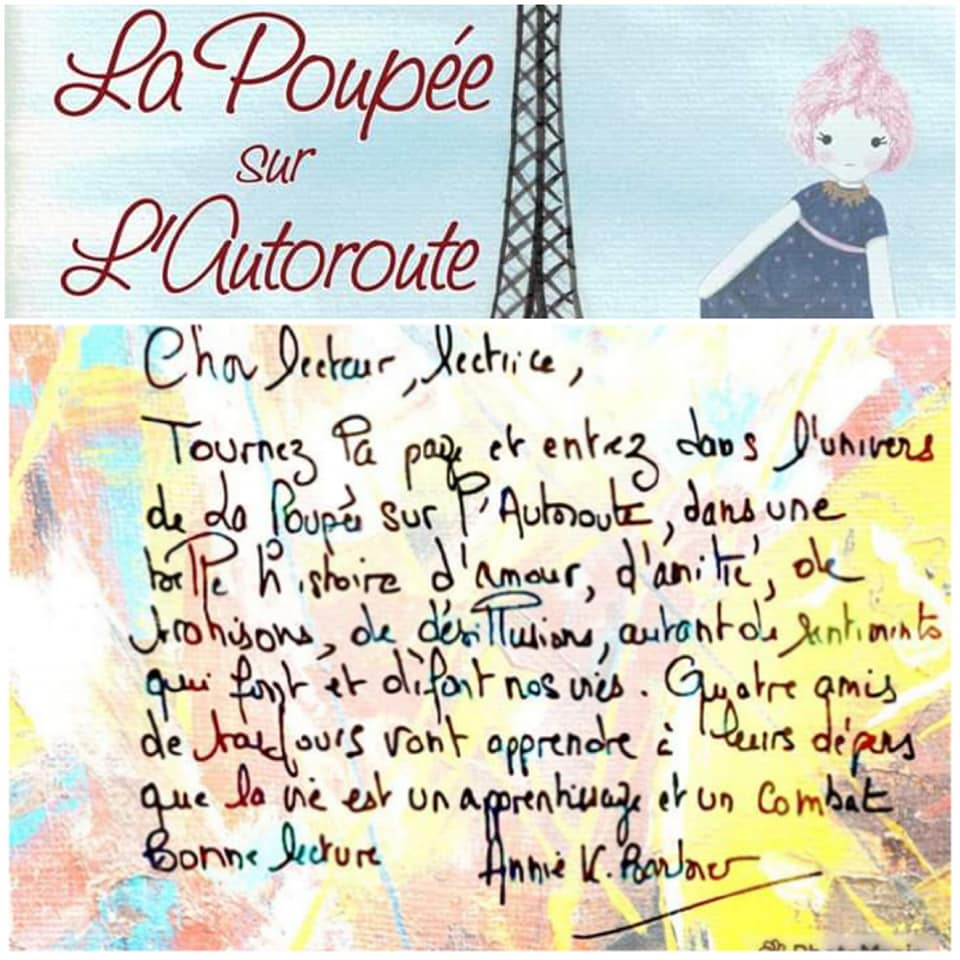 La Poupée
sur
L'Autoroute
Cher lecteur, lectrice,
Tournez la page et entrez dans l'univers
de La Poupée sur l'Autoroute, dans une
belle histoire d'amour, d'amitié, de
trahisons, de désillusions, autant de sentiments
qui font et défont nos vies. Quatre amis
de toujours vont apprendre à leurs dépens
que la vie est un apprentissage et un combat
Bonne lecture Annie K. Barbier